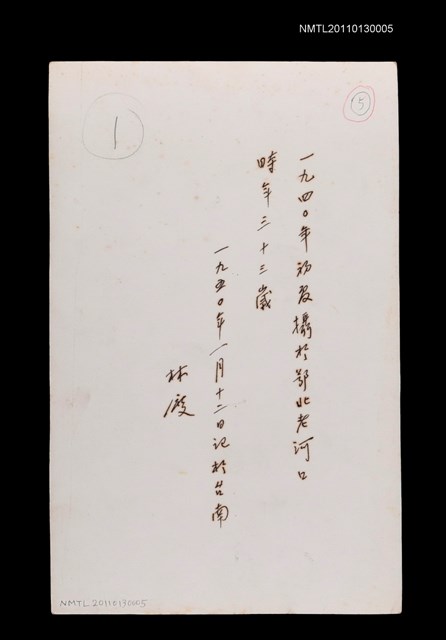 NMTL20110130005
5
1
一九四0年初夏攝於鄂北老河口
時年三十三歲
一九五0年一月十二日記於台南
林慶
NMTL20110130005